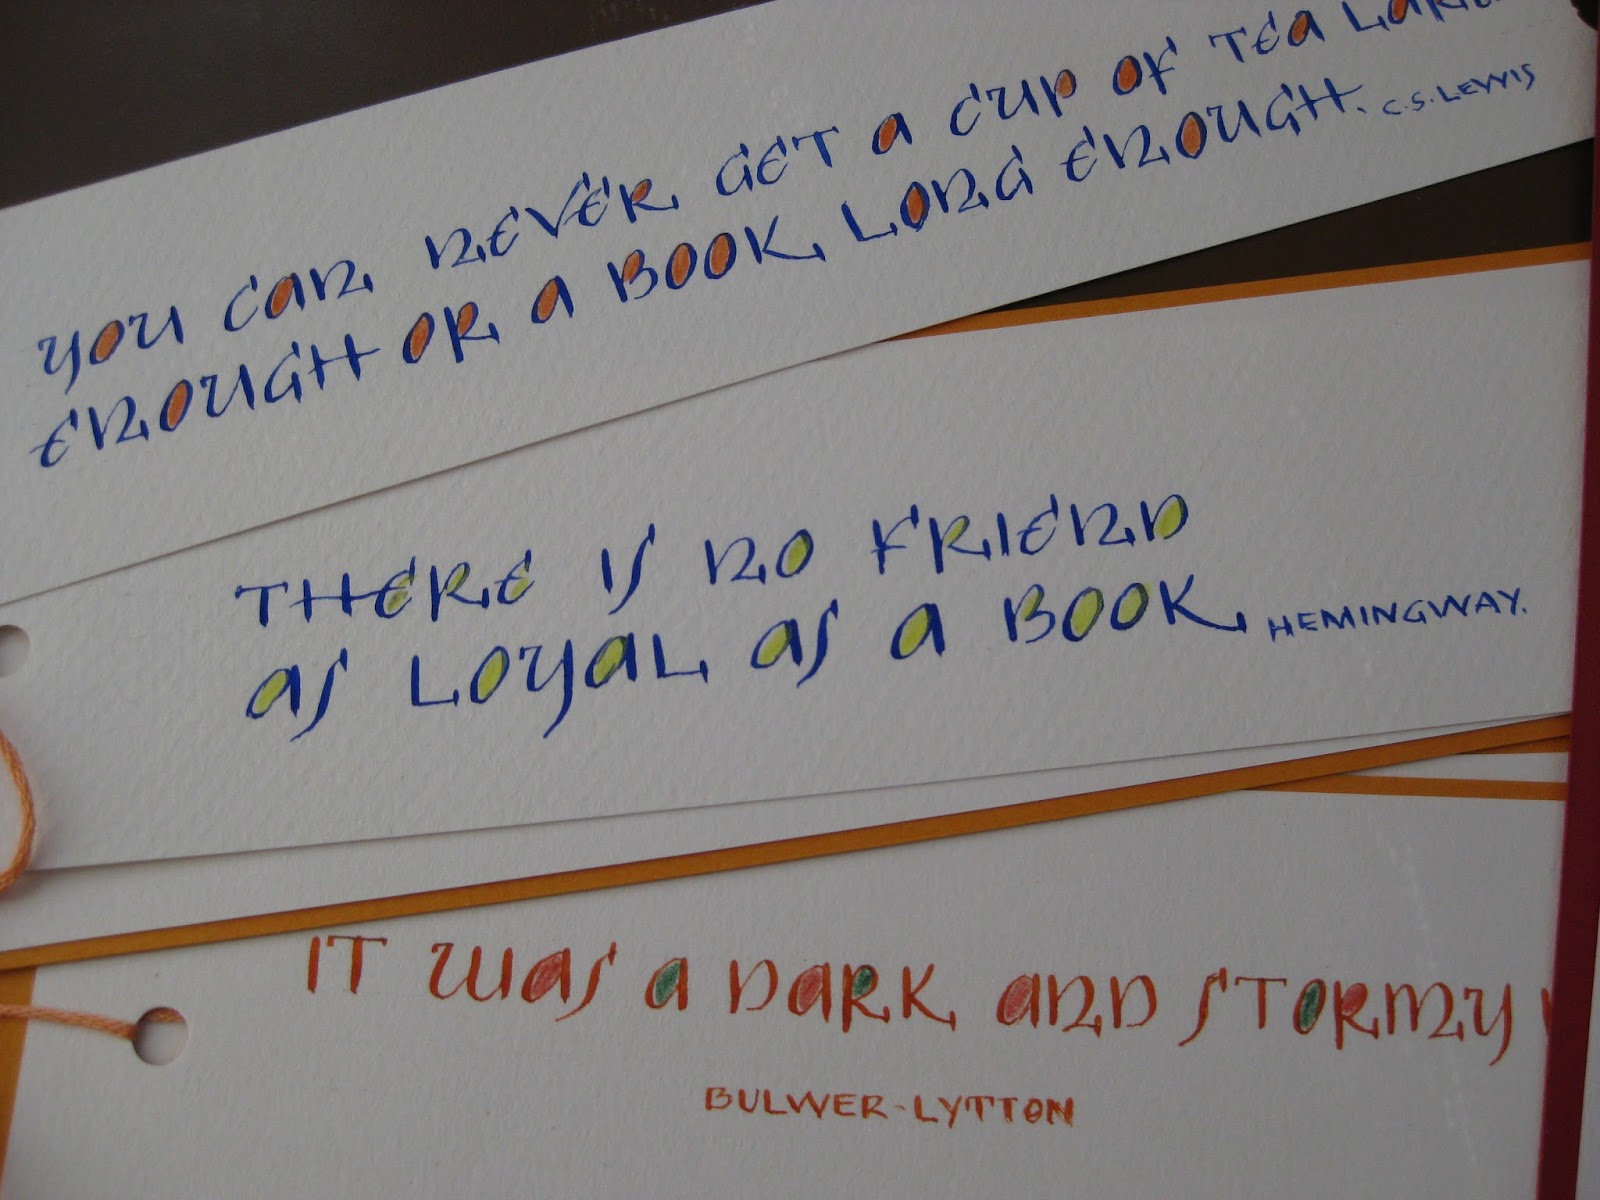 YOU CAN NEVER GET A CUP OF TEA
ENOUGH OR A BOOK LONG ENOUGH. C.S. LEWIS
THERE IS NO FRIEND
AS LOYAL AS A BOOK HEMINGWAY.
IT WAS A DARK AND STORMY
BULWER-LYTTON